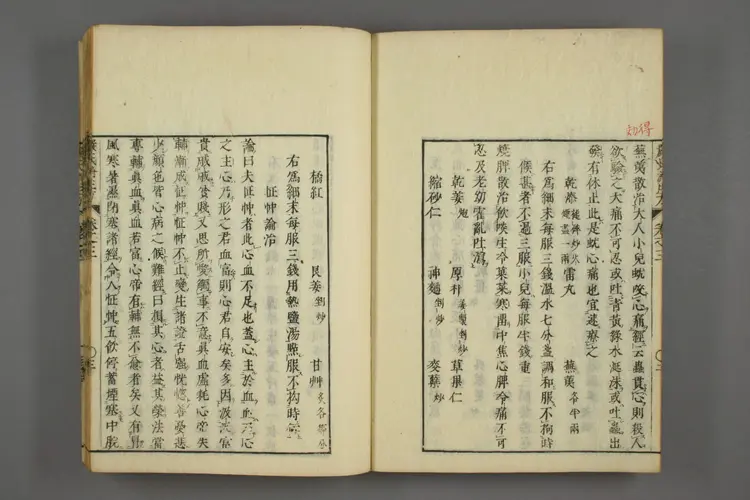 蕪荑散治大人小兒蚘咬心痛經云蟲貫心則殺人
欲驗之大痛不可忍或吐青黃綠水涎沫或吐蟲出
發有休止此是蚘心痛也宜速療之
乾漆 雷丸 蕪荑各半兩
右爲細末每服三錢溫水七分盞調和服不拘時
候甚者不過三服小兒每服半錢重
燒脾散治飲啖生冷菓菜寒留中焦心脾冷痛不可
忍及老幼霍亂吐瀉
乾姜炮 厚朴姜製炒 草果仁
縮砂仁 神麯炒 麥蘖炒
橘紅 良姜炒 甘艸炙各等分
右爲細末每服三錢用熱鹽湯點服不拘時候
怔忡論治
論曰夫怔忡者此心血不足也蓋心主於血血乃心
之主心乃形之君血富則心君自安矣多因汲汲富
貴戚戚貧賤又思所愛觸事不意眞血虛耗心帝失
輔漸成怔忡怔忡不止變生諸證舌強恍惚善憂悲
少顏色皆心病之候難經曰損其心者益其榮法當
專輔眞血眞血若富心帝有輔無不愈者矣又有冒
風寒暑濕閉塞諸經令人怔忡五飲停蓄堙塞中脘
卷之三